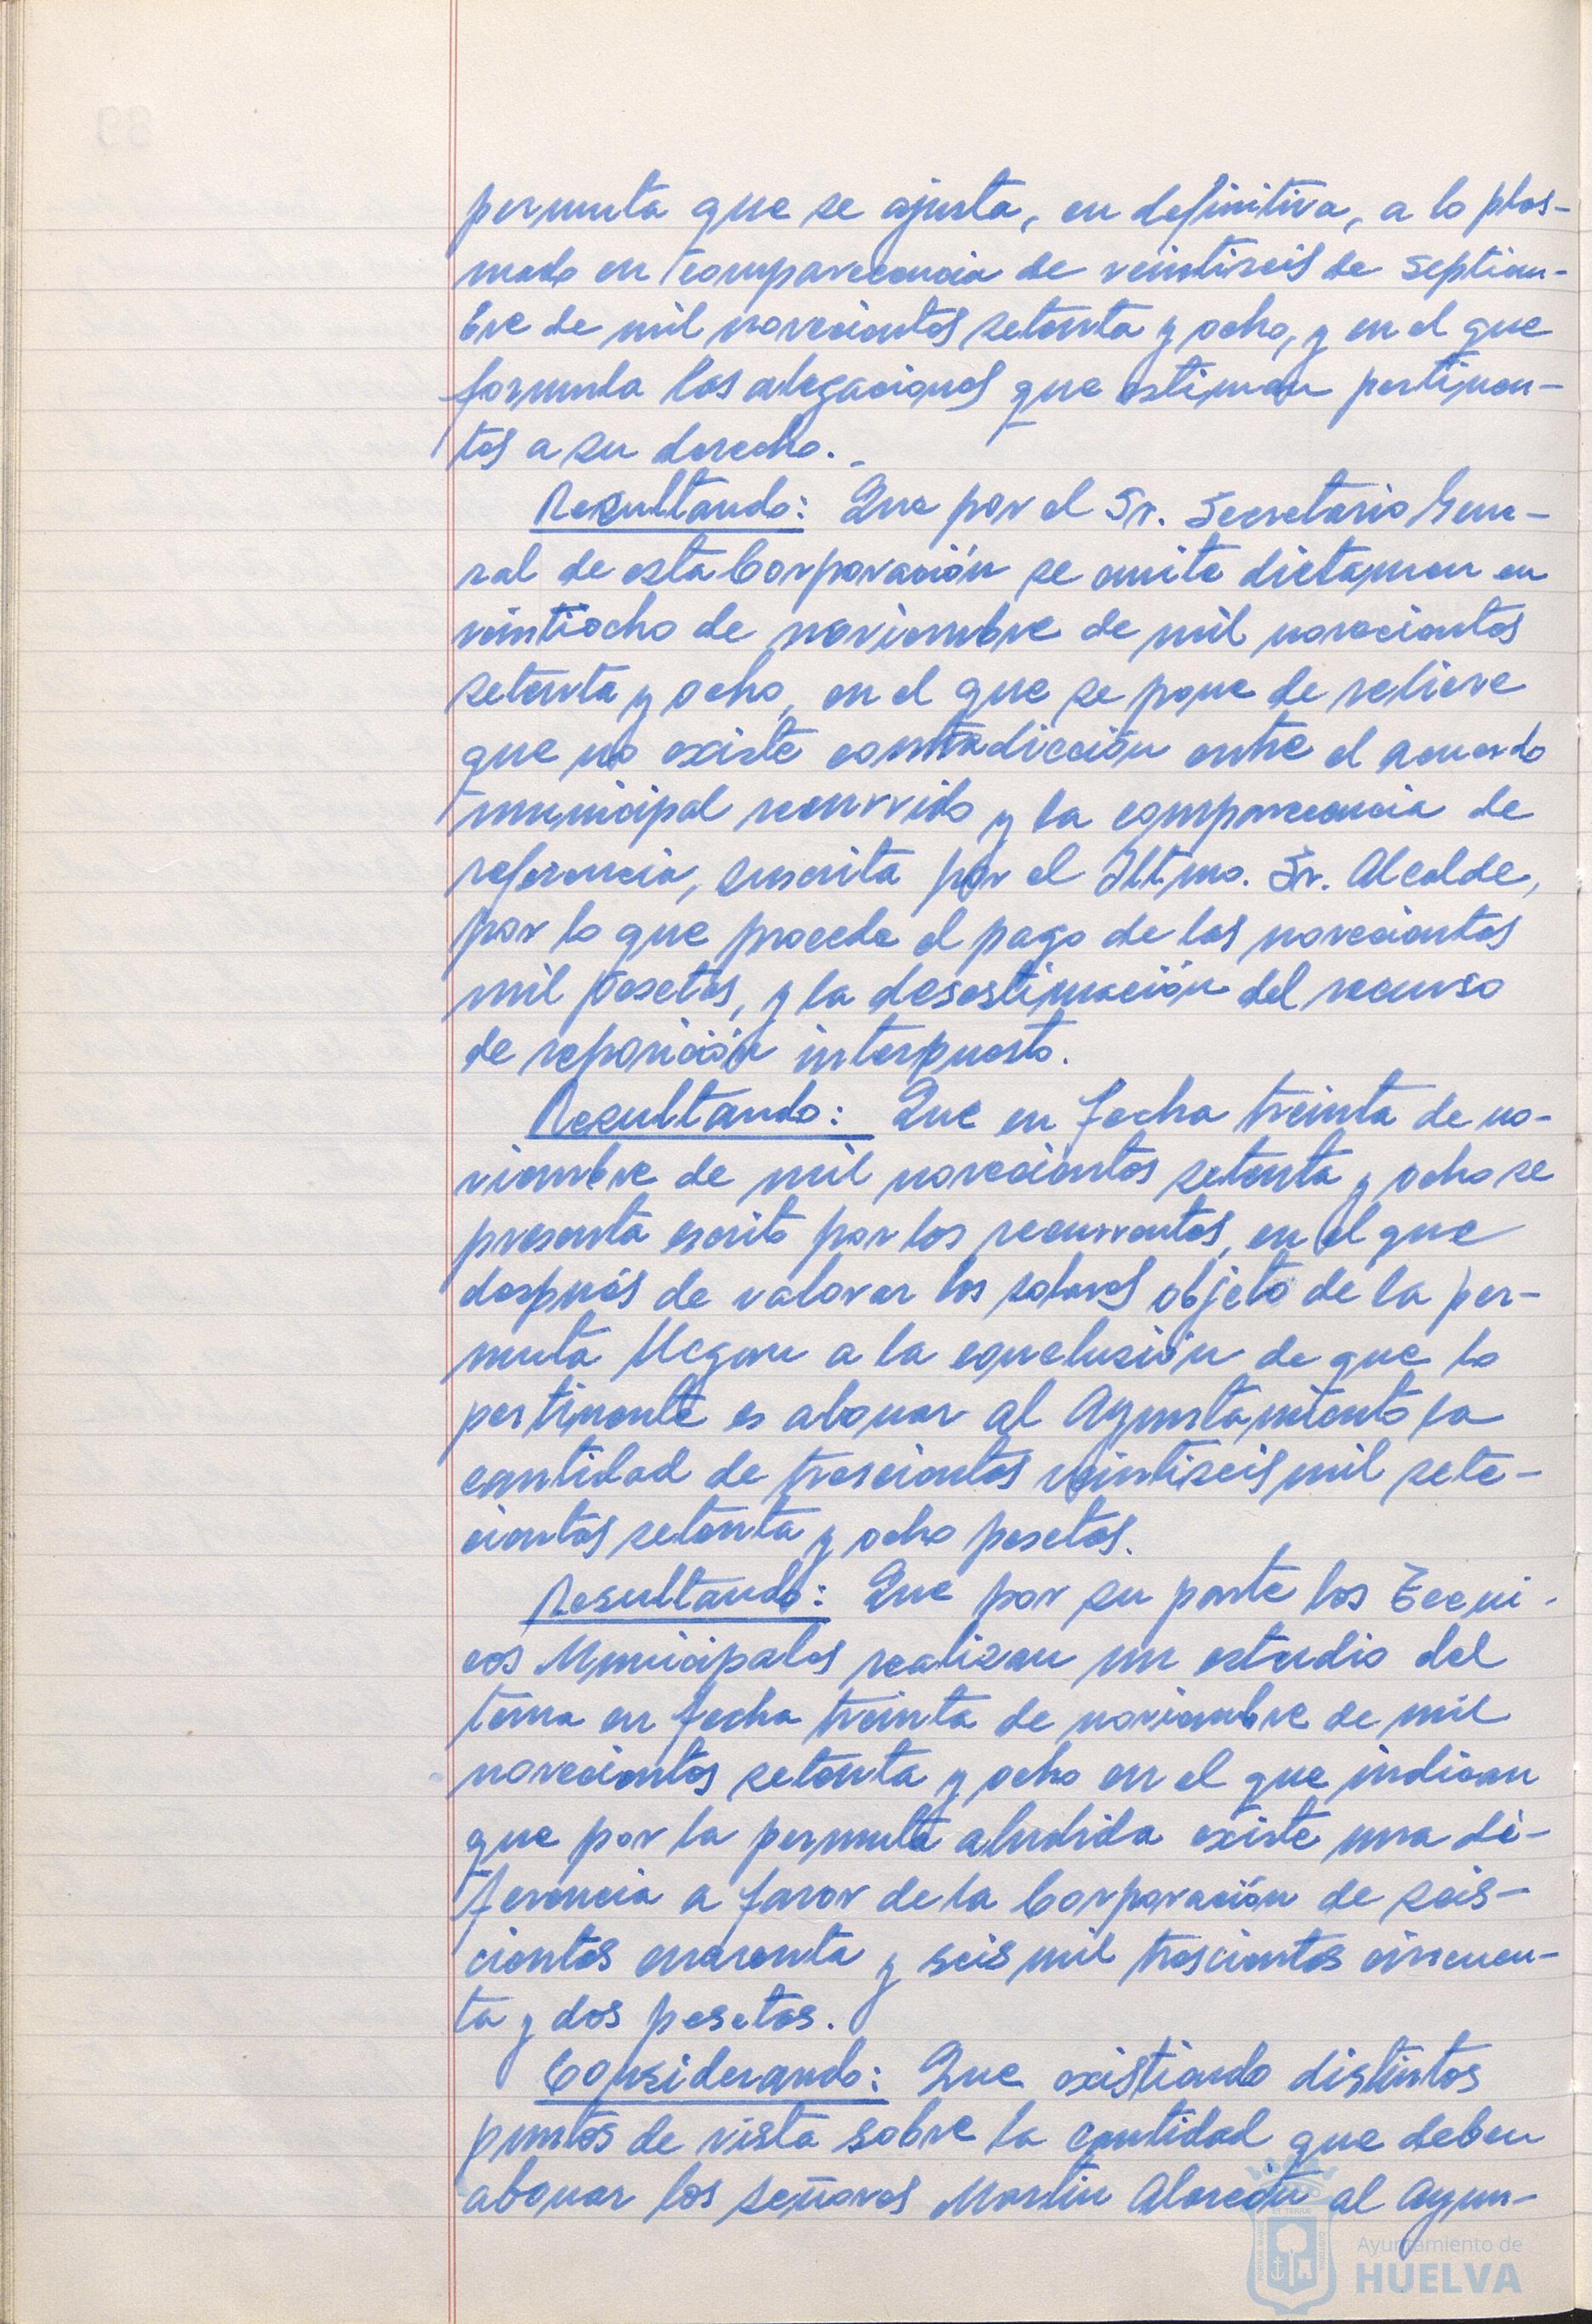 permuta que se ajusta, en definitiva, a lo plas-
mado en comparecencia de veintiseis de septiem-
bre de mil novecientos setenta y ocho, y en el que
formula las alegaciones que estiman pertinen-
tes a su derecho.-
Resultando: Que por el Sr. Secretario Gene-
ral de esta Corporación se emite dictamen en
veintiocho de noviembre de mil novecientos
setenta y ocho, en el que se pone de relieve
que no existe contradicción entre el acuerdo
municipal recurrido y la comparecencia de
referencia, suscrita por el Iltmo. Sr. Alcalde,
por lo que procede el pago de las novecientas
mil pesetas, y la desestimación del recurso
de reposición interpuesto.
Resultando: Que en fecha treinta de no-
viembre de mil novecientos setenta y ocho se
presenta escrito por los recurrentes, en el que
después de valorar los solares objeto de la per-
muta llegan a la conclusión de que lo
pertinente es abonar al Ayuntamiento la
cantidad de trescientas veintiseis mil sete-
cientas setenta y ocho pesetas.
Resultando: Que por su parte los Técni-
cos Municipales realizan un estudio del
tema en fecha treinta de noviembre de mil
novecientos setenta y ocho en el que indican
que por la permuta aludida existe una di-
ferencia a favor de la Corporación de seis-
cientas cuarenta y seis mil trescientas cincuen-
ta y dos pesetas.
Considerando: Que existiendo distintos
puntos de vista sobre la cantidad que deben
abonar los señores Martin Alarcón al Ayun-
Ayuntamiento de
HUELVA